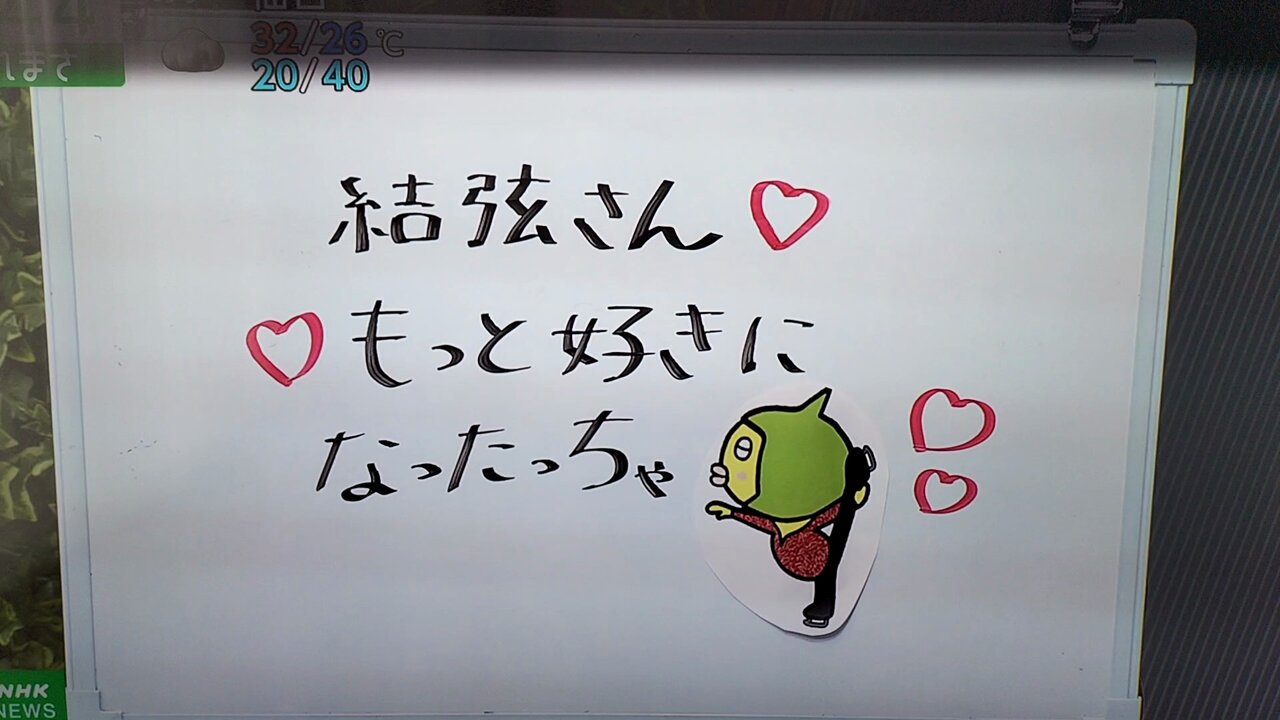 しまで
32/26℃
20/40
結弦さん♡
♡もっと好きに
なったっちゃ♡♡
NHK
NEWS